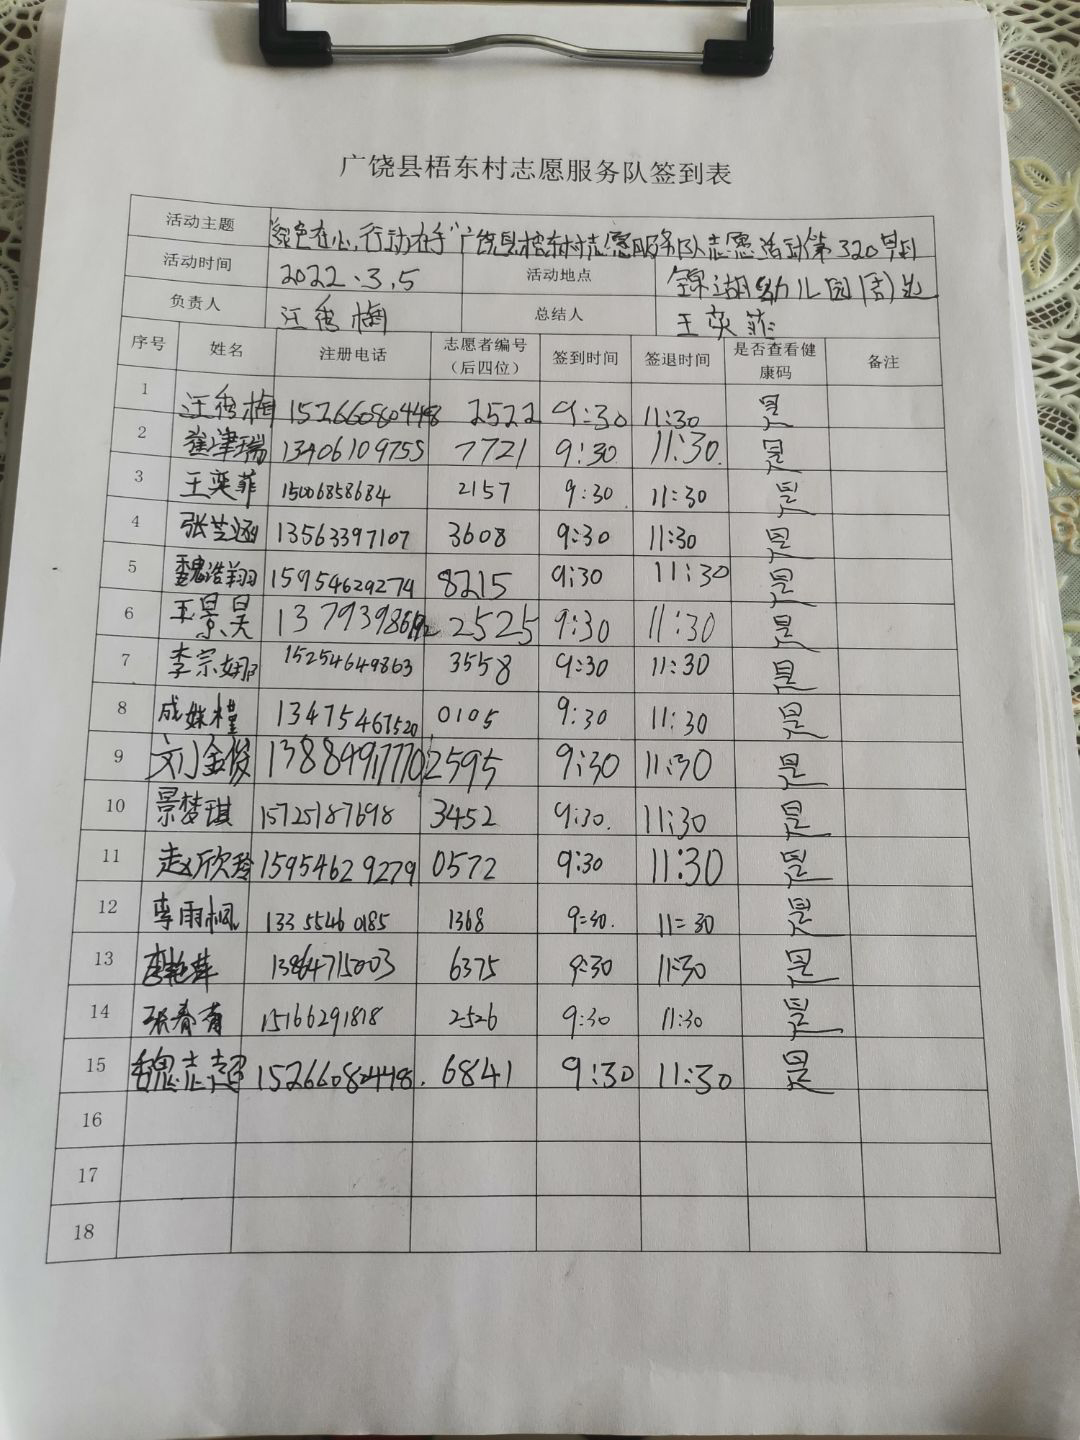 广饶县梧东村志愿服务队签到表
活动主题 “绿色在心,行动在手”广饶县梧东村志愿服务队志愿活动第320早到
活动时间 2022.3.5 活动地点 锦湖幼儿园周边
负责人 汪秀梅 总结人 王奕菲
序号 姓名 注册电话 志愿者编号（后四位） 签到时间 签退时间 是否查看健康码 备注
1 汪秀梅 152660804498 2522 9:30 11:30 是
2 崔津瑞 13406109755 7721 9:30 11:30 是
3 王奕菲 15006858684 2157 9:30 11:30 是
4 张芝涵 13563397107 3608 9:30 11:30 是
5 魏浩翔 15954629274 8215 9:30 11:30 是
6 王景昊 2525 9:30 11:30 是
7 李宗娜 15254649863 3558 9:30 11:30 是
8 成姝槿 13475467520 0105 9:30 11:30 是
9 刘金俊 13884917770 2595 9:30 11:30 是
10 景梦琪 15725187698 3452 9:30. 11:30 是
11 赵欣玲 15954629279 0572 9:30 11:30 是
12 李雨桐 13355460185 1368 9=30. 11=30 是
13 李艳萍 13864715003 6375 9:30 11:30 是
14 张春 15166291818 2526 9:30 11:30 是
15 魏志超 15266082448. 6841 9:30 11:30 是
16
17
18